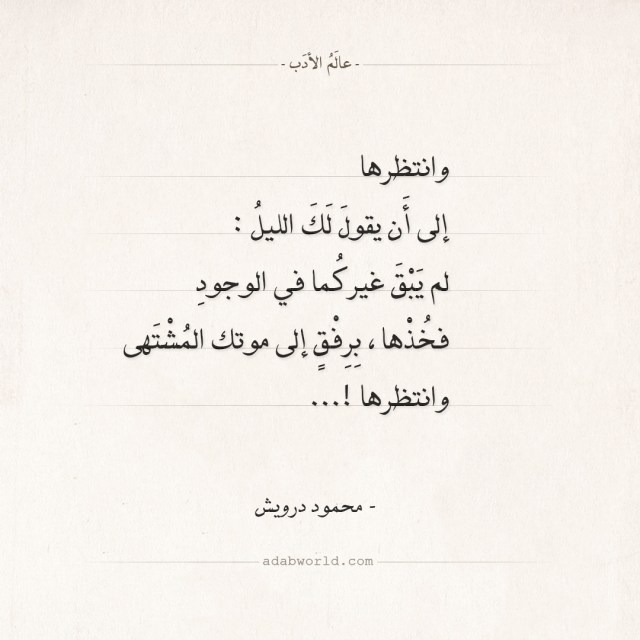 - عالَمُ الأدَب -
وانتظرها
إلى أَن يقولَ لَكَ الليلُ :
لم يَبْقَ غيركُما في الوجودِ
فخُذْها ، بِرِفْقٍ إلى موتك المُشْتَهى
وانتظرها !...
- محمود درويش
adabworld.com